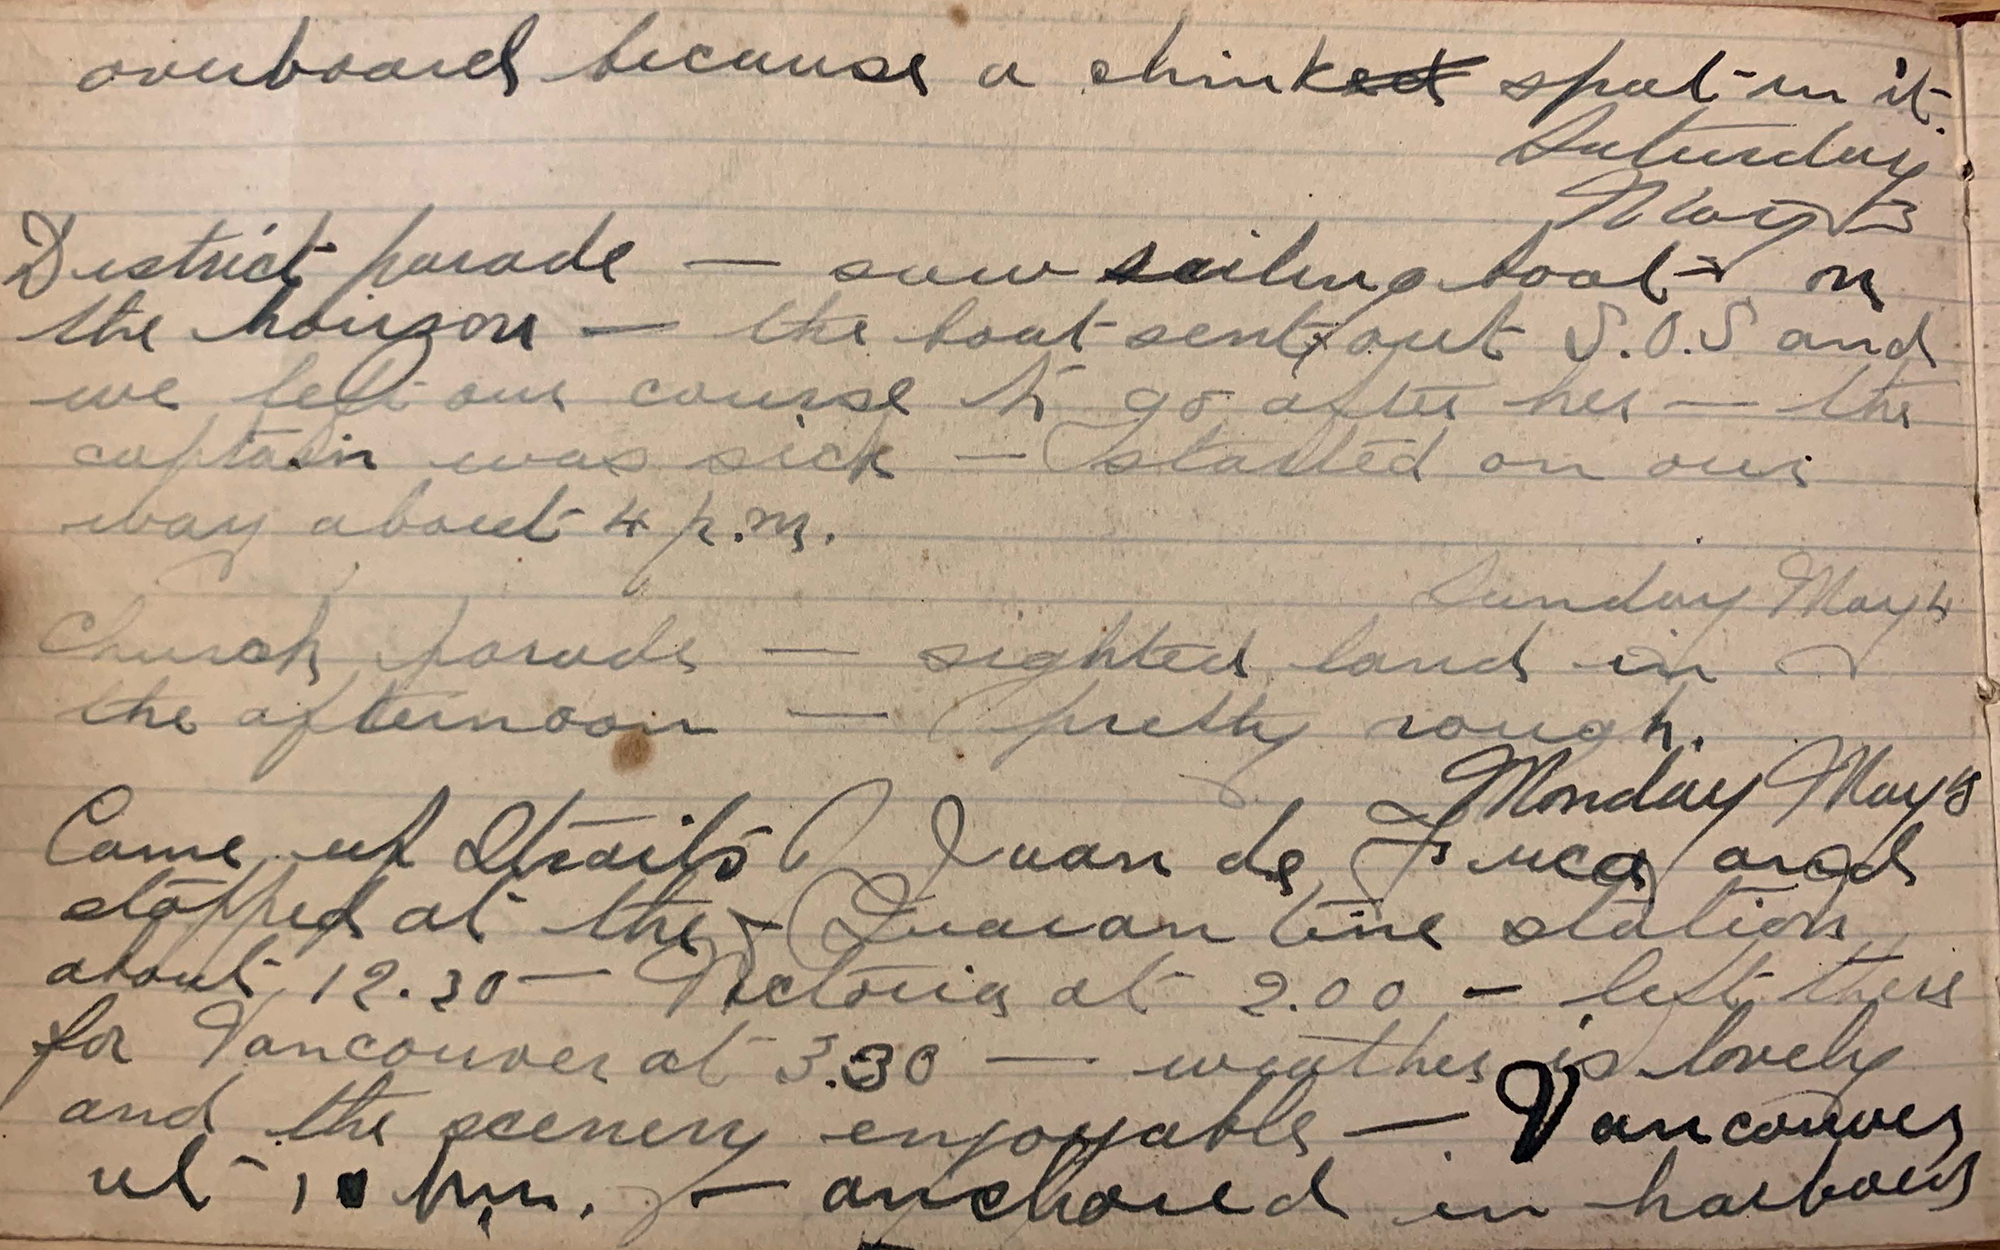 overboard because a chink spat in it.
Saturday
May 3
District parade — saw sailing boat — on
the horizon — the boat sent out S.O.S and
we left our course to go after her — the
captain was sick — started on our
way about 4 p.m.
Sunday May 4
Church parade — sighted land in
the afternoon — pretty rough.
Monday May 5
Came up Straits Juan de Fuca and
stopped at the — Quarantine station
about 12.30 — Victoria at 2.00 — left there
for Vancouver at 3.30 — weather is lovely
and the scenery enjoyable — Vancouver
at 10 p.m. — anchored in harbour